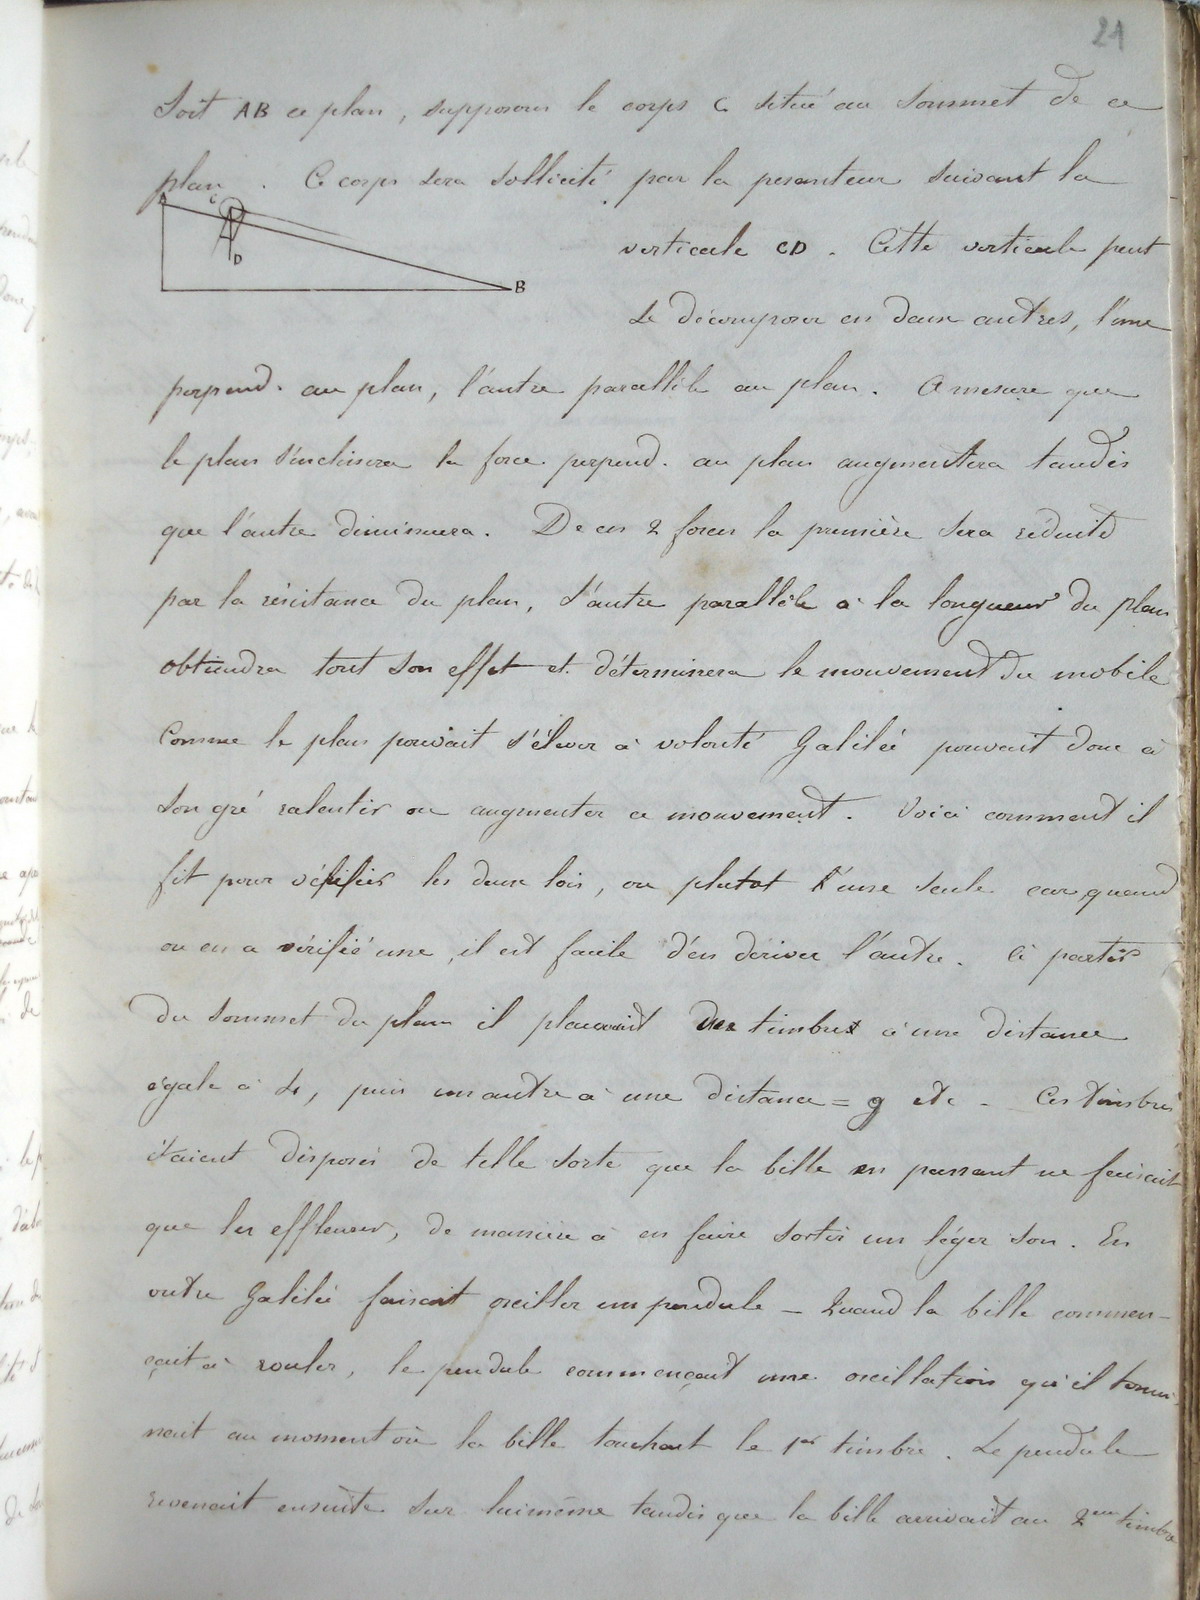 21
Soit AB ce plan, supposons le corps C situé au sommet de ce
plan. Ce corps sera sollicité par la pesanteur suivant la
A C D B
verticale CD. Cette verticale peut
se décomposer en deux autres, l'une
perpend. au plan, l'autre parallèle au plan. A mesure que
le plan s'inclinera la force perpend. au plan augmentera tandis
que l'autre diminuera. De ces 2 forces la première sera réduite
par la résistance du plan, l'autre parallèle à la longueur du plan
obtiendra tout son effet et déterminera le mouvement du mobile
Comme le plan pouvait s'élever à volonté Galilée pouvait donc à
son gré ralentir ou augmenter ce mouvement. Voici comment il
fit pour vérifier les deux lois, ou plutot l'une seule car quand
on en a vérifié une, il est facile d'en dériver l'autre. A partir
du sommet du plan il plaçait des timbres à une distance
égale à 4, puis un autre à une distance = 9 etc - Ces timbres
étaient disposés de telle sorte que la bille en passant ne faisait
que les effleurer, de manière à en faire sortir un léger son. En
outre Galilée faisait osciller un pendule - Quand la bille commen-
çait à rouler, le pendule commençait une oscillation qu'il termi-
nait au moment où la bille touchait le 1er timbre. Le pendule
revenait ensuite sur lui même tandis que la bille arrivait au 2eme timbre